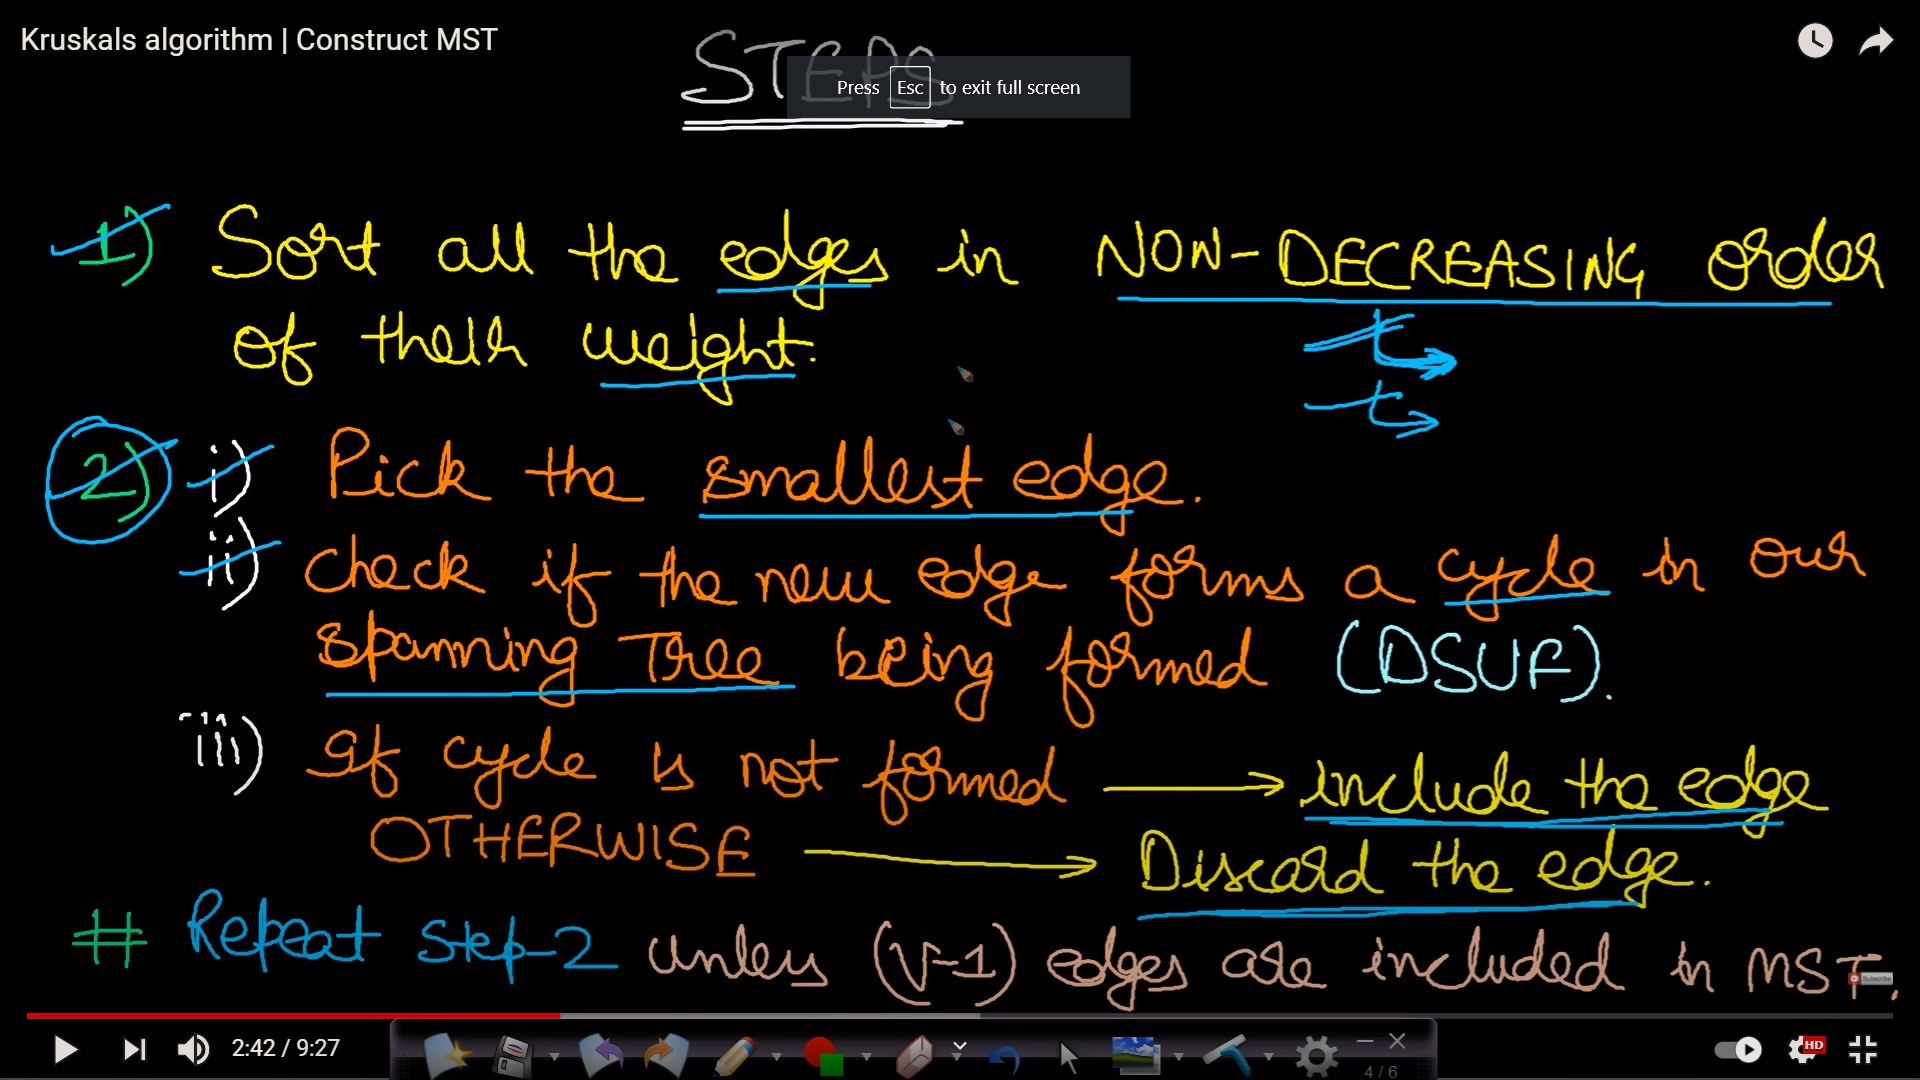 Kruskals algorithm | Construct MST
STEPS
Press Esc to exit full screen
1) Sort all the edges in NON-DECREASING order
of their weight.
2) i) Pick the smallest edge.
ii) check if the new edge forms a cycle in our
spanning Tree being formed (DSUF).
iii) If cycle is not formed → include the edge
OTHERWISE → Discard the edge.
# Repeat step-2 unless (V-1) edges are included in MST.
Subscribe
2:42 / 9:27
HD
4 / 6